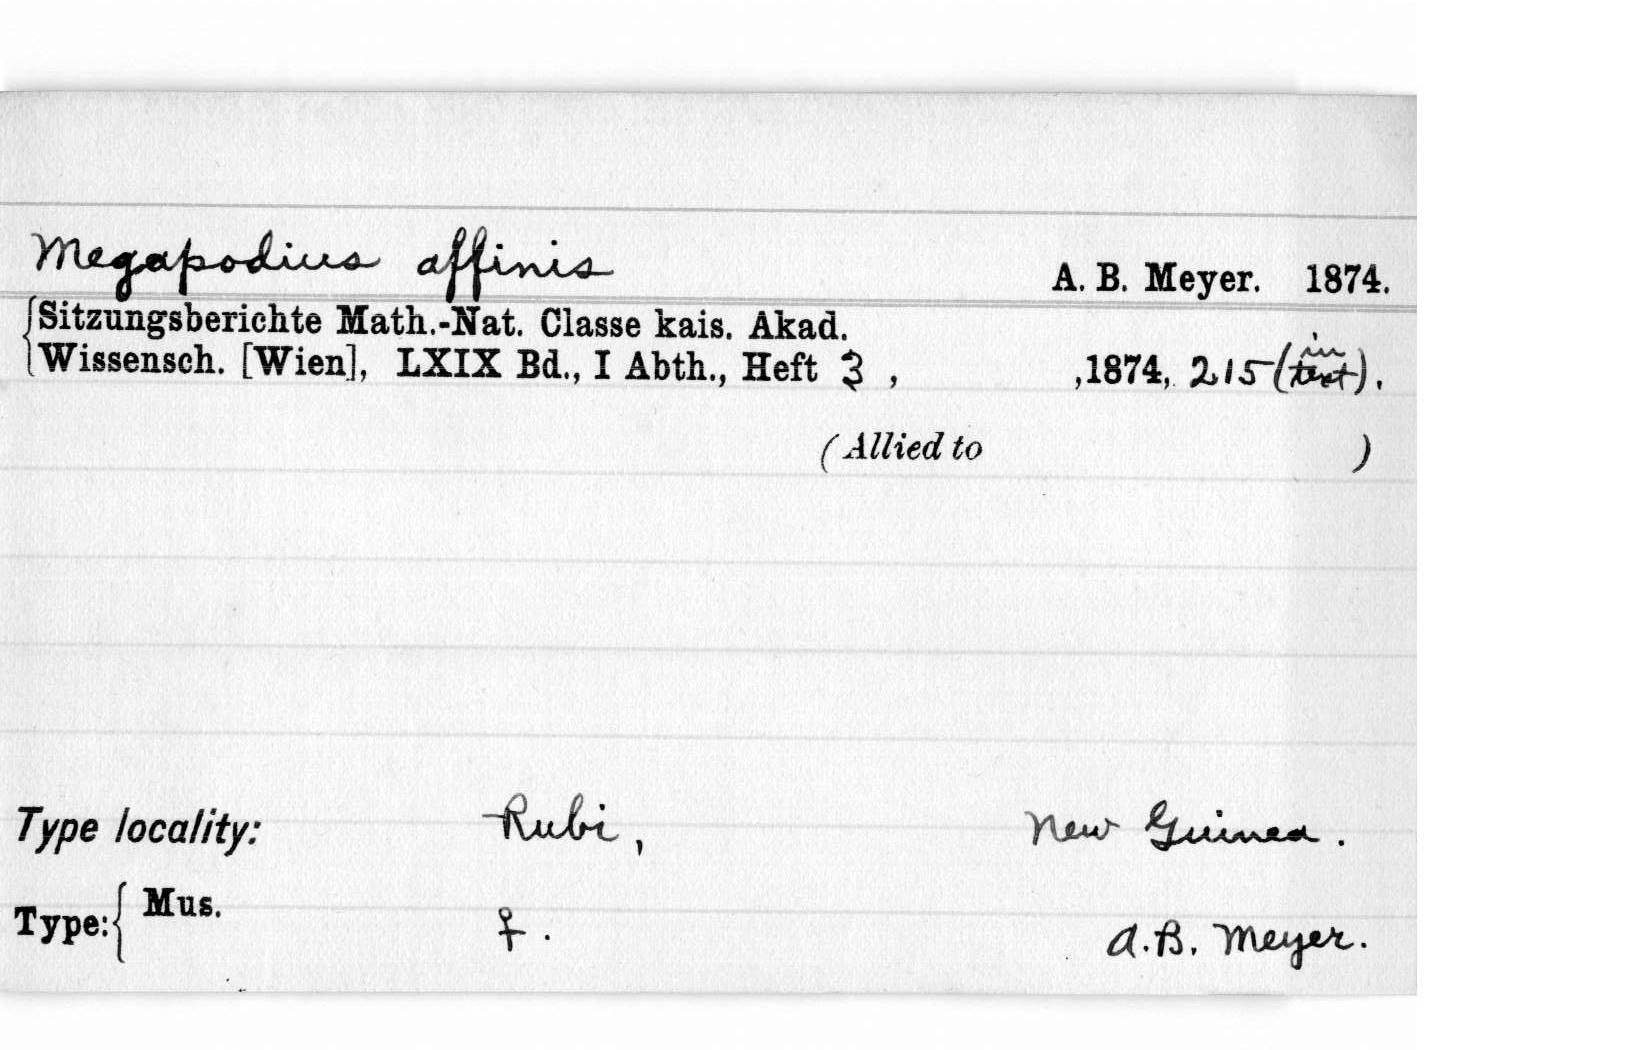 Megapodius affinis A. B. Meyer. 1874.
Sitzungsberichte Math.-Nat. Classe kais. Akad.
Wissensch. [Wien], LXIX Bd., I Abth., Heft 3 , ,1874, 215 (in text).
(Allied to )
Type locality: Rubi, New Guinea.
Type: Mus. ♀. A.B. Meyer.